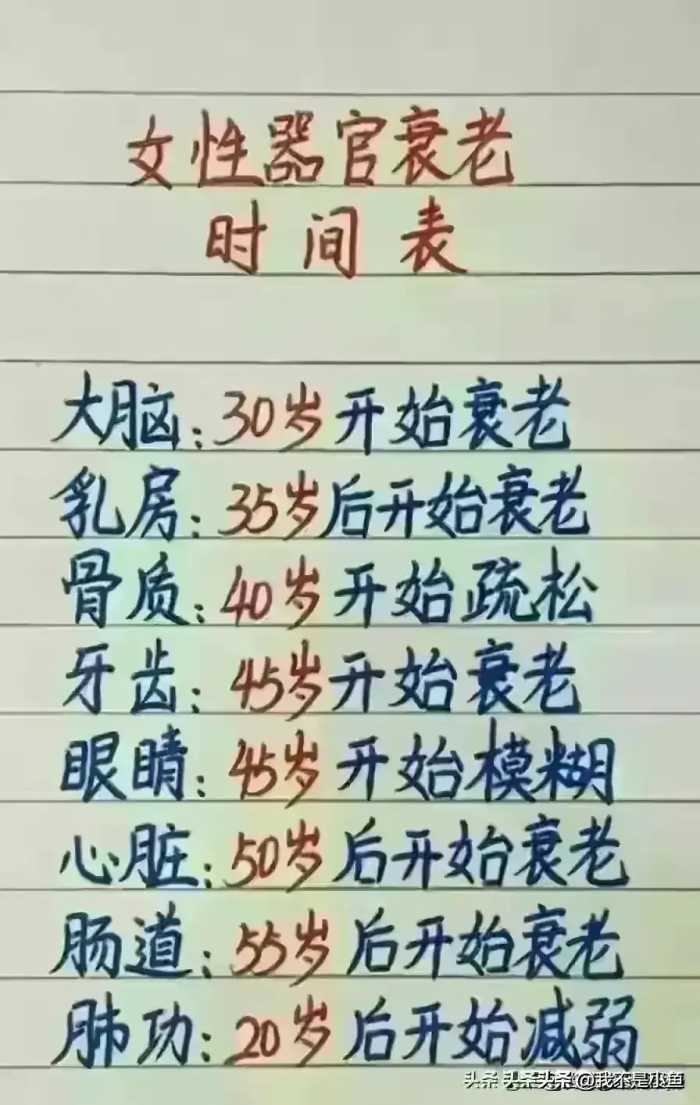 女性器官衰老
时间表
大脑:30岁开始衰老
乳房:35岁后开始衰老
骨质:40岁开始疏松
牙齿:45岁开始衰老
眼睛:45岁开始模糊
心脏:50岁后开始衰老
肠道:55岁后开始衰老
肺功:20岁后开始减弱
头条 头条头条@我不是小鱼